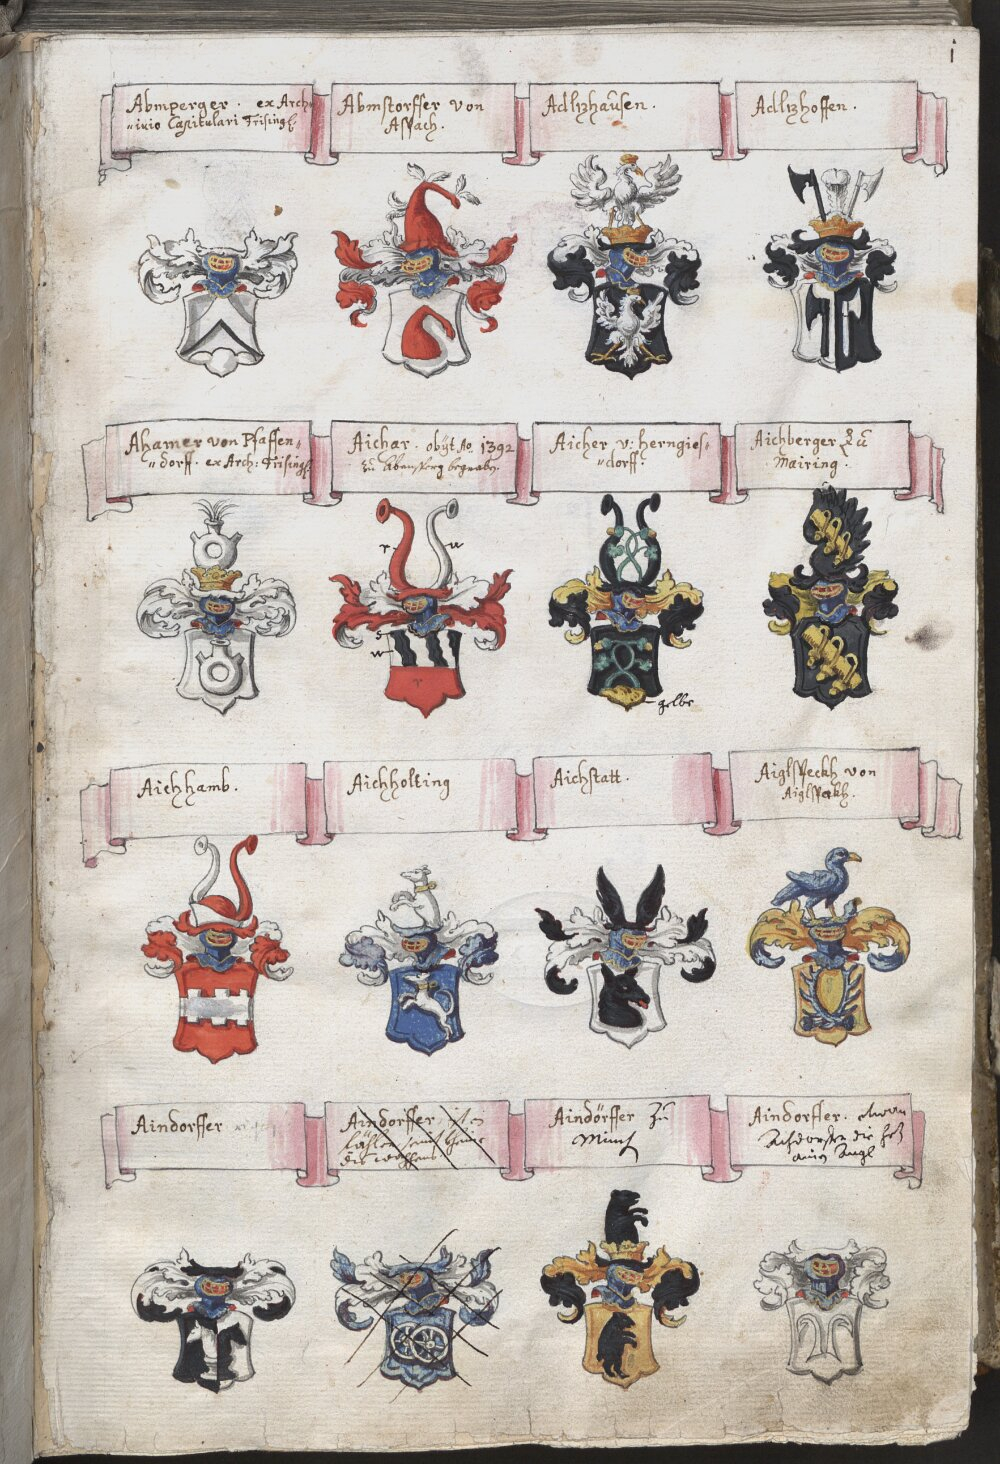 i
Abmperger. ex Arch-
"ivio Capitulari Frising:
Abmstorffer von
Aspach.
Adlzhausen.
Adlzhoffen.
Ahamer von Pfaffen-
"dorff. ex Arch: Frising:
Aichar. obijt Ao. 1392
zu Abensperg begraben.
Aicher v: Herngies-
"dorff.
Aichberger zu
Mairing.
r
w
s
w
r
gelbe
Aichhamb.
Aichholting
Aichstatt.
Aiglspeckh von
Aiglspeckh.
Aindorffer
Aindorffer
Aindörffer zu
Münch
Aindorffer.